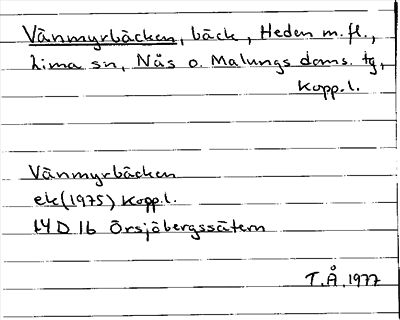 Vänmyrbäcken, bäck, Heden m.fl.,
Lima sn, Näs o. Malungs doms. tg,
Kopp.l.
Vänmyrbäcken
ek(1975) Kopp.l.
14 D 1b Örsjöbergssätern
T.Å. 1977